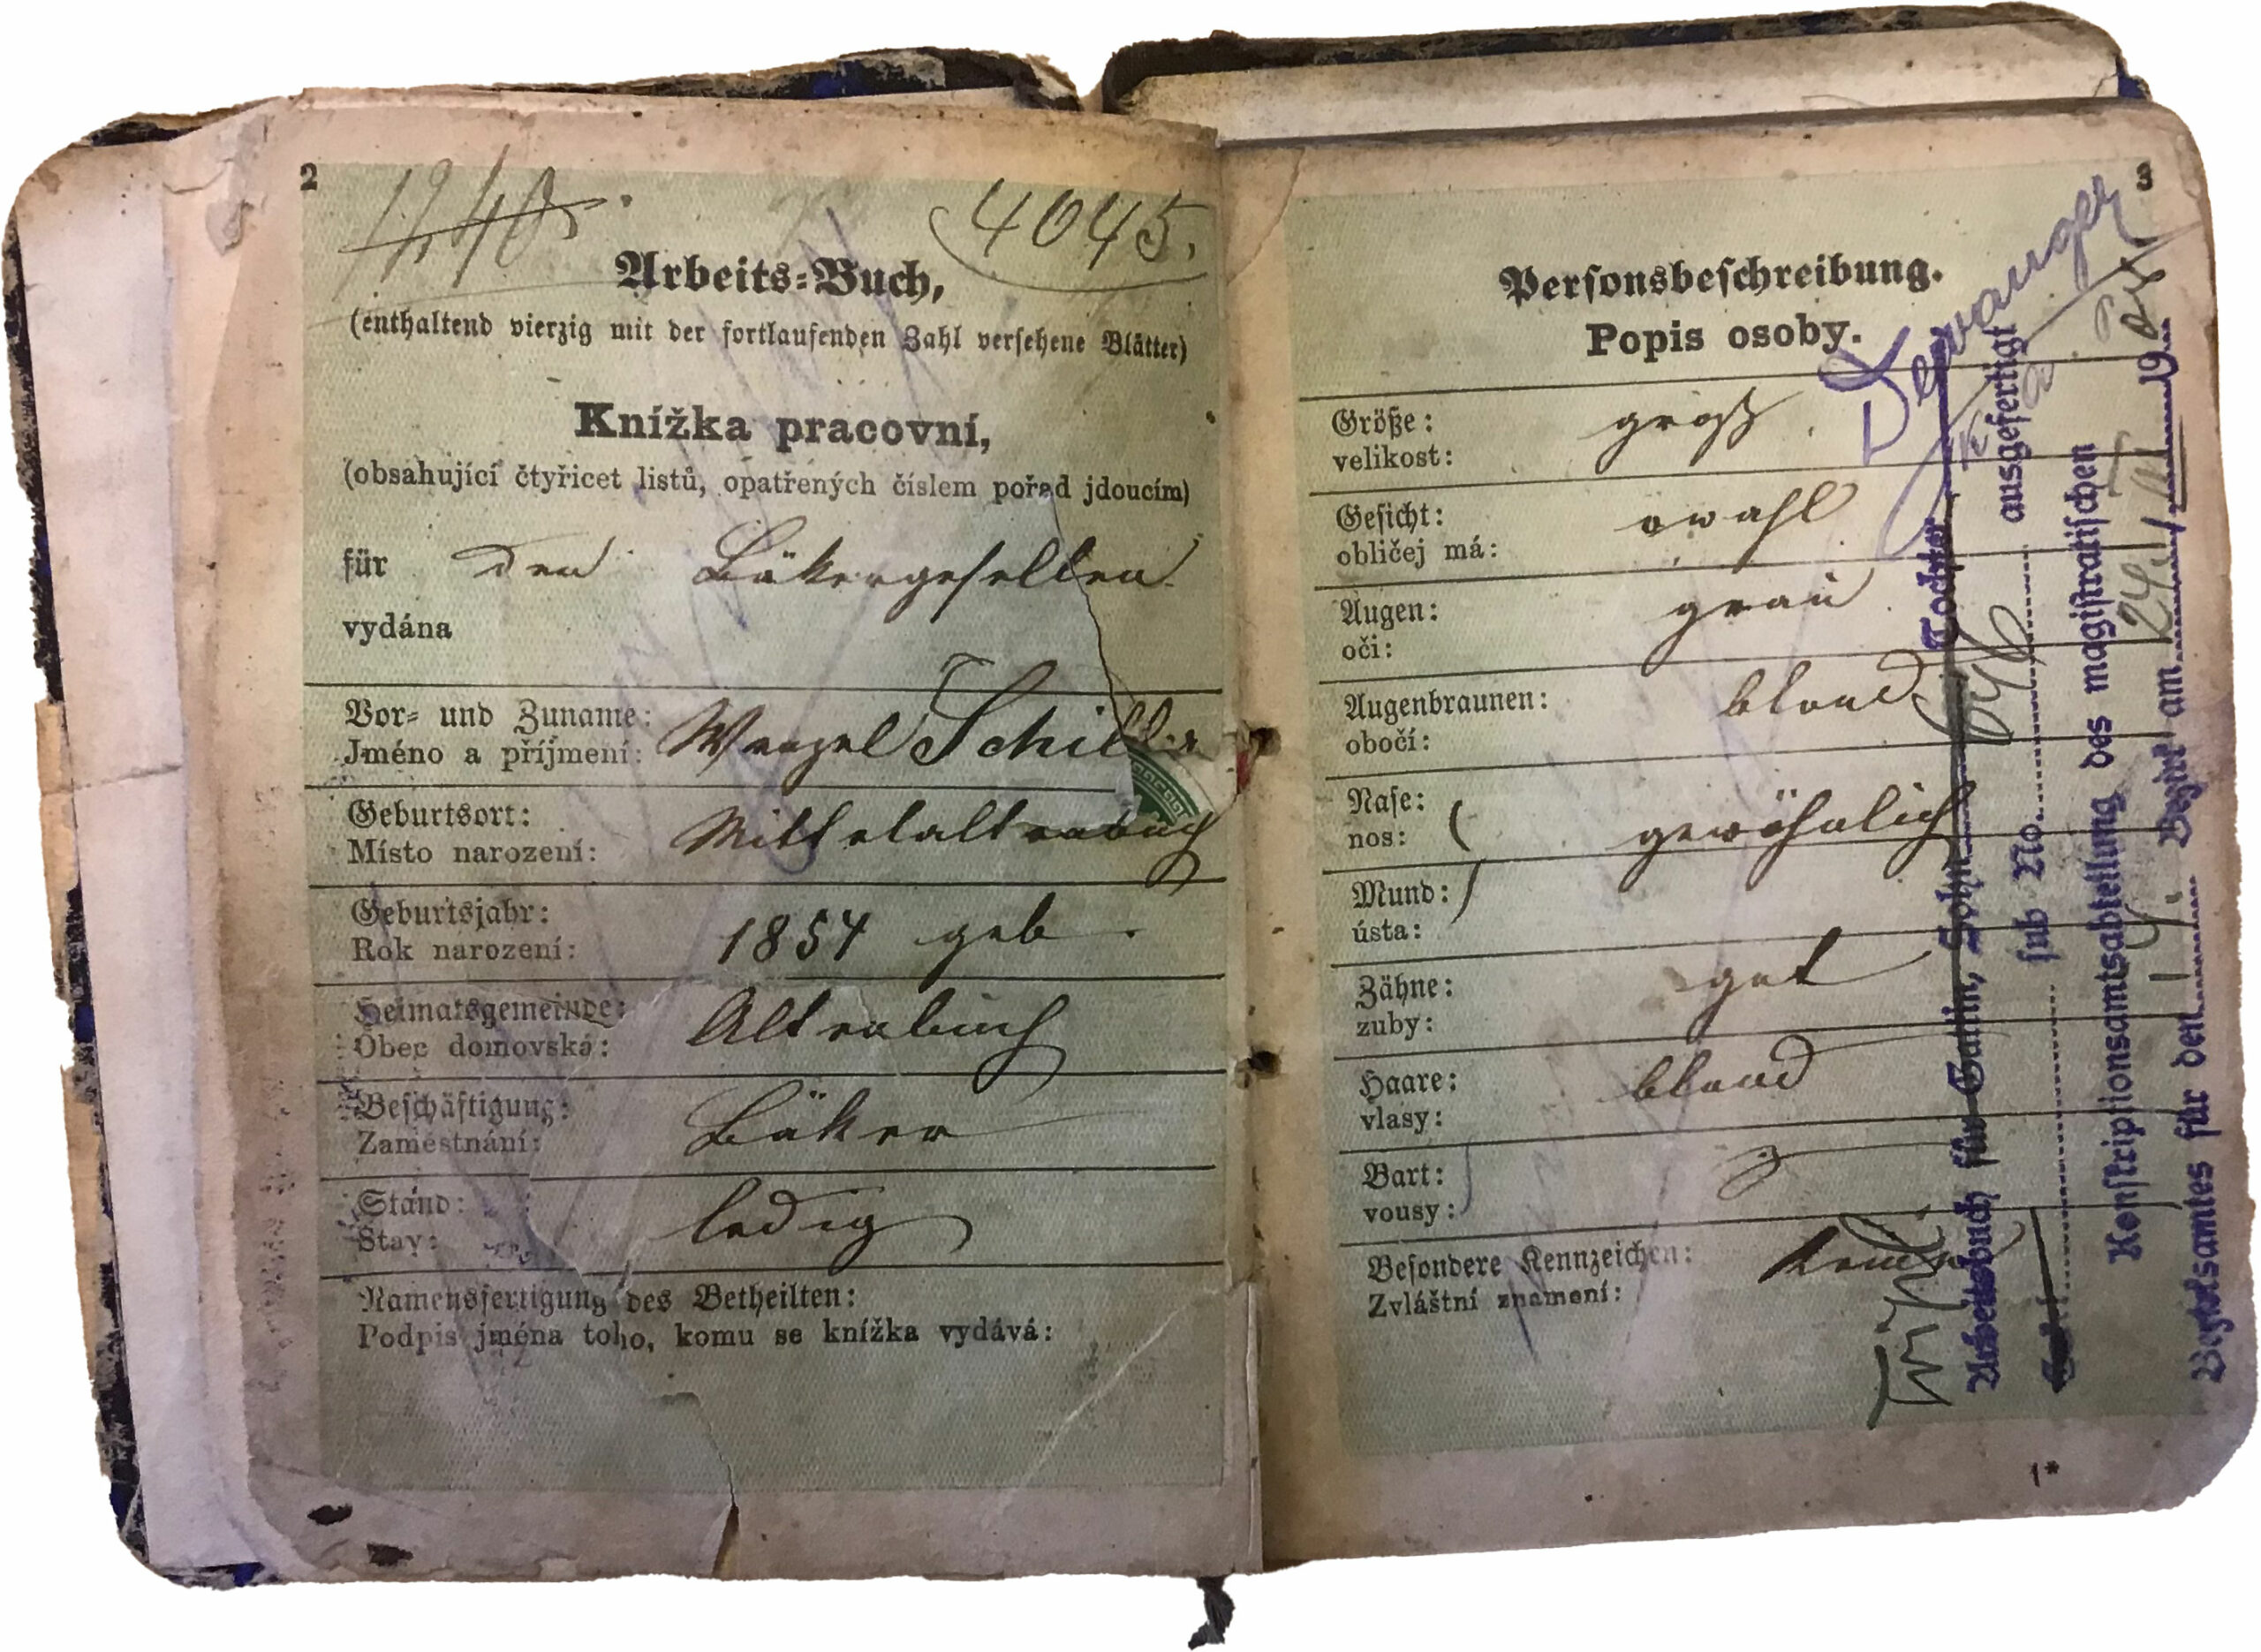 2
1240
4045.
Arbeits-Buch,
(enthaltend vierzig mit der fortlaufenden Zahl versehene Blätter)
Knížka pracovní,
(obsahující čtyřicet listů, opatřených číslem pořad jdoucím)
für den Bäkergesellen
vydána
Vor- und Zuname: Wenzel Schiller
Jméno a příjmení:
Geburtsort: Mittelaltenbuch
Místo narození:
Geburtsjahr: 1854 geb.
Rok narození:
Heimatsgemeinde: Altenbuch
Obec domovská:
Beschäftigung: Bäker
Zaměstnání:
Stand: ledig
Stav:
Namensfertigung des Betheilten:
Podpis jména toho, komu se knížka vydává:
3
Personsbeschreibung.
Popis osoby.
Größe: groß
velikost:
Gesicht: owahl
obličej má:
Augen: grau
oči:
Augenbraunen: blond
obočí:
Nase: gewöhnlich
nos:
Mund:
ústa:
Zähne: gut
zuby:
Haare: blond
vlasy:
Bart:
vousy:
Besondere Kennzeichen: keine
Zvláštní znamení:
1*
Arbeitsbuch für Gattin, Sohn Tochter
sub No. ausgefertigt
Konskriptionsamtsabteilung des magistratischen
Bezirksamtes für den Bezirk am 19